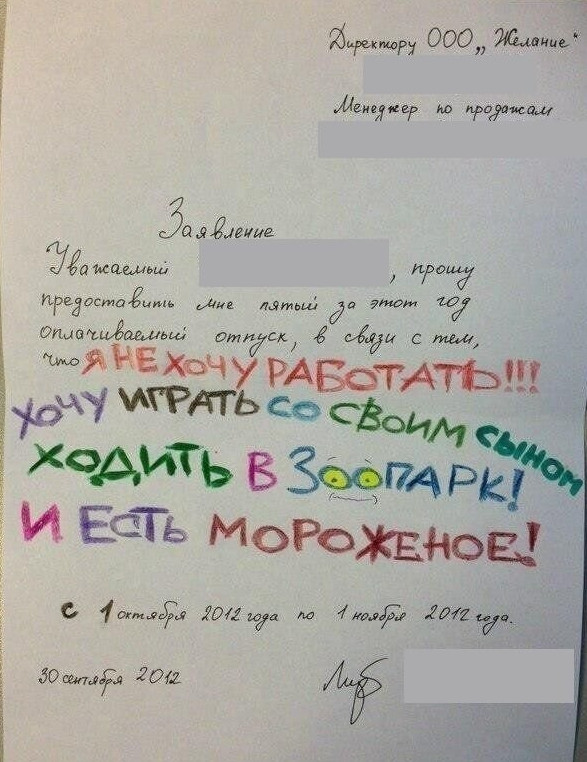 Директору ООО „Желание“
Менеджер по продажам
Заявление
Уважаемый , прошу
предоставить мне пятый за этот год
оплачиваемый отпуск, в связи с тем,
что Я НЕ ХОЧУ РАБОТАТЬ!!!
ХОЧУ ИГРАТЬ СО СВОИМ СЫНОМ
ХОДИТЬ В ЗООПАРК!
И ЕСТЬ МОРОЖЕНОЕ!
с 1 октября 2012 года по 1 ноября 2012 года.
30 сентября 2012